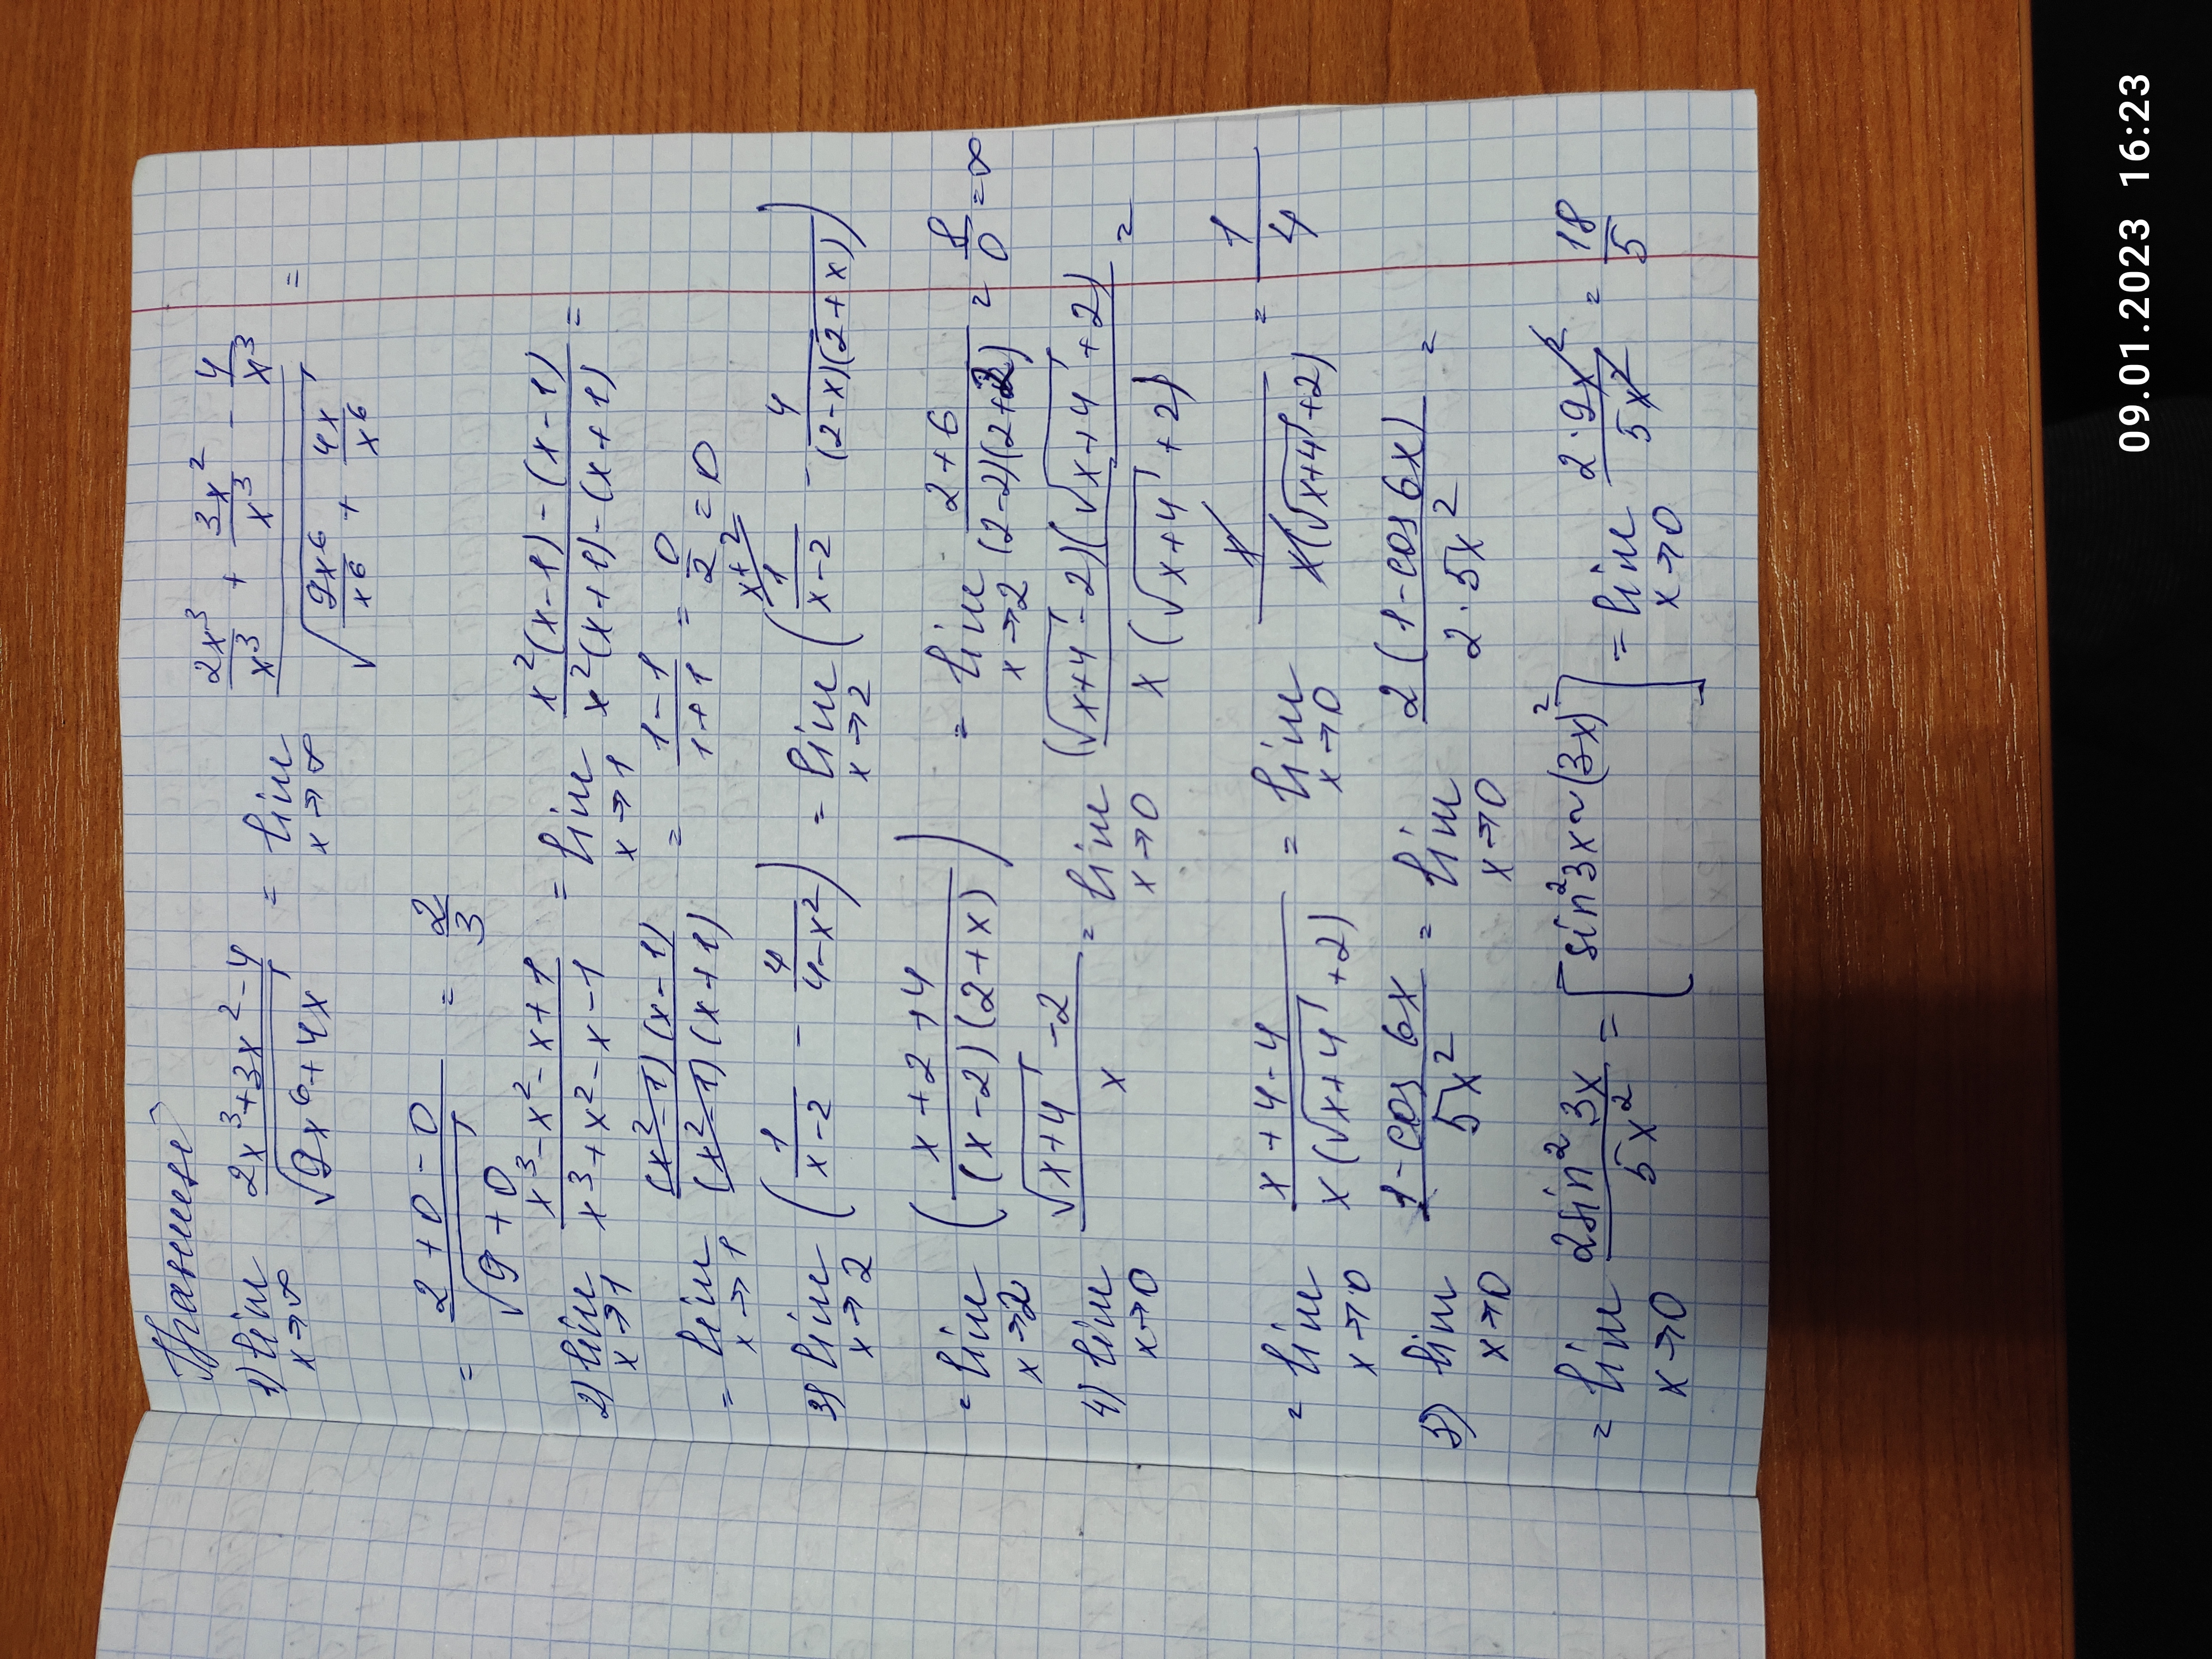 Правшеев
1) lim x→∞ (2x³+3x²-4)/(√(9x⁶+4x)) = lim x→∞ (2x³/x³ + 3x²/x³ - 4/x³)/(√(9x⁶/x⁶ + 4x/x⁶)) =
= (2+0-0)/(√(9+0)) = 2/3
2) lim x→1 (x³-x²-x+1)/(x³+x²-x-1) = lim x→1 (x²(x-1)-(x-1))/(x²(x+1)-(x+1)) =
= lim x→1 ((x²-1)(x-1))/((x²-1)(x+1)) = (1-1)/(1+1) = 0/2 = 0
3) lim x→2 (1/(x-2) - 4/(4-x²)) = lim x→2 (x+2/1/(x-2) - 4/((2-x)(2+x)))
= lim x→2 ((x+2+4)/((x-2)(2+x))) = lim x→2 (2+6)/((2-2)(2+2)) = 8/0 = ∞
4) lim x→0 (√(x+4) -2)/x = lim x→0 ((√(x+4) -2)(√(x+4) +2))/(x(√(x+4) +2)) =
= lim x→0 (x+4-4)/(x(√(x+4) +2)) = lim x→0 x/(x(√(x+4) +2)) = 1/4
5) lim x→0 (1-cos 6x)/(5x²) = lim x→0 (2(1-cos 6x))/(2·5x²) =
= lim x→0 (2sin² 3x)/(5x²) = [sin² 3x ~ (3x)²] = lim x→0 (2·9x²)/(5x²) = 18/5
09.01.2023 16:23